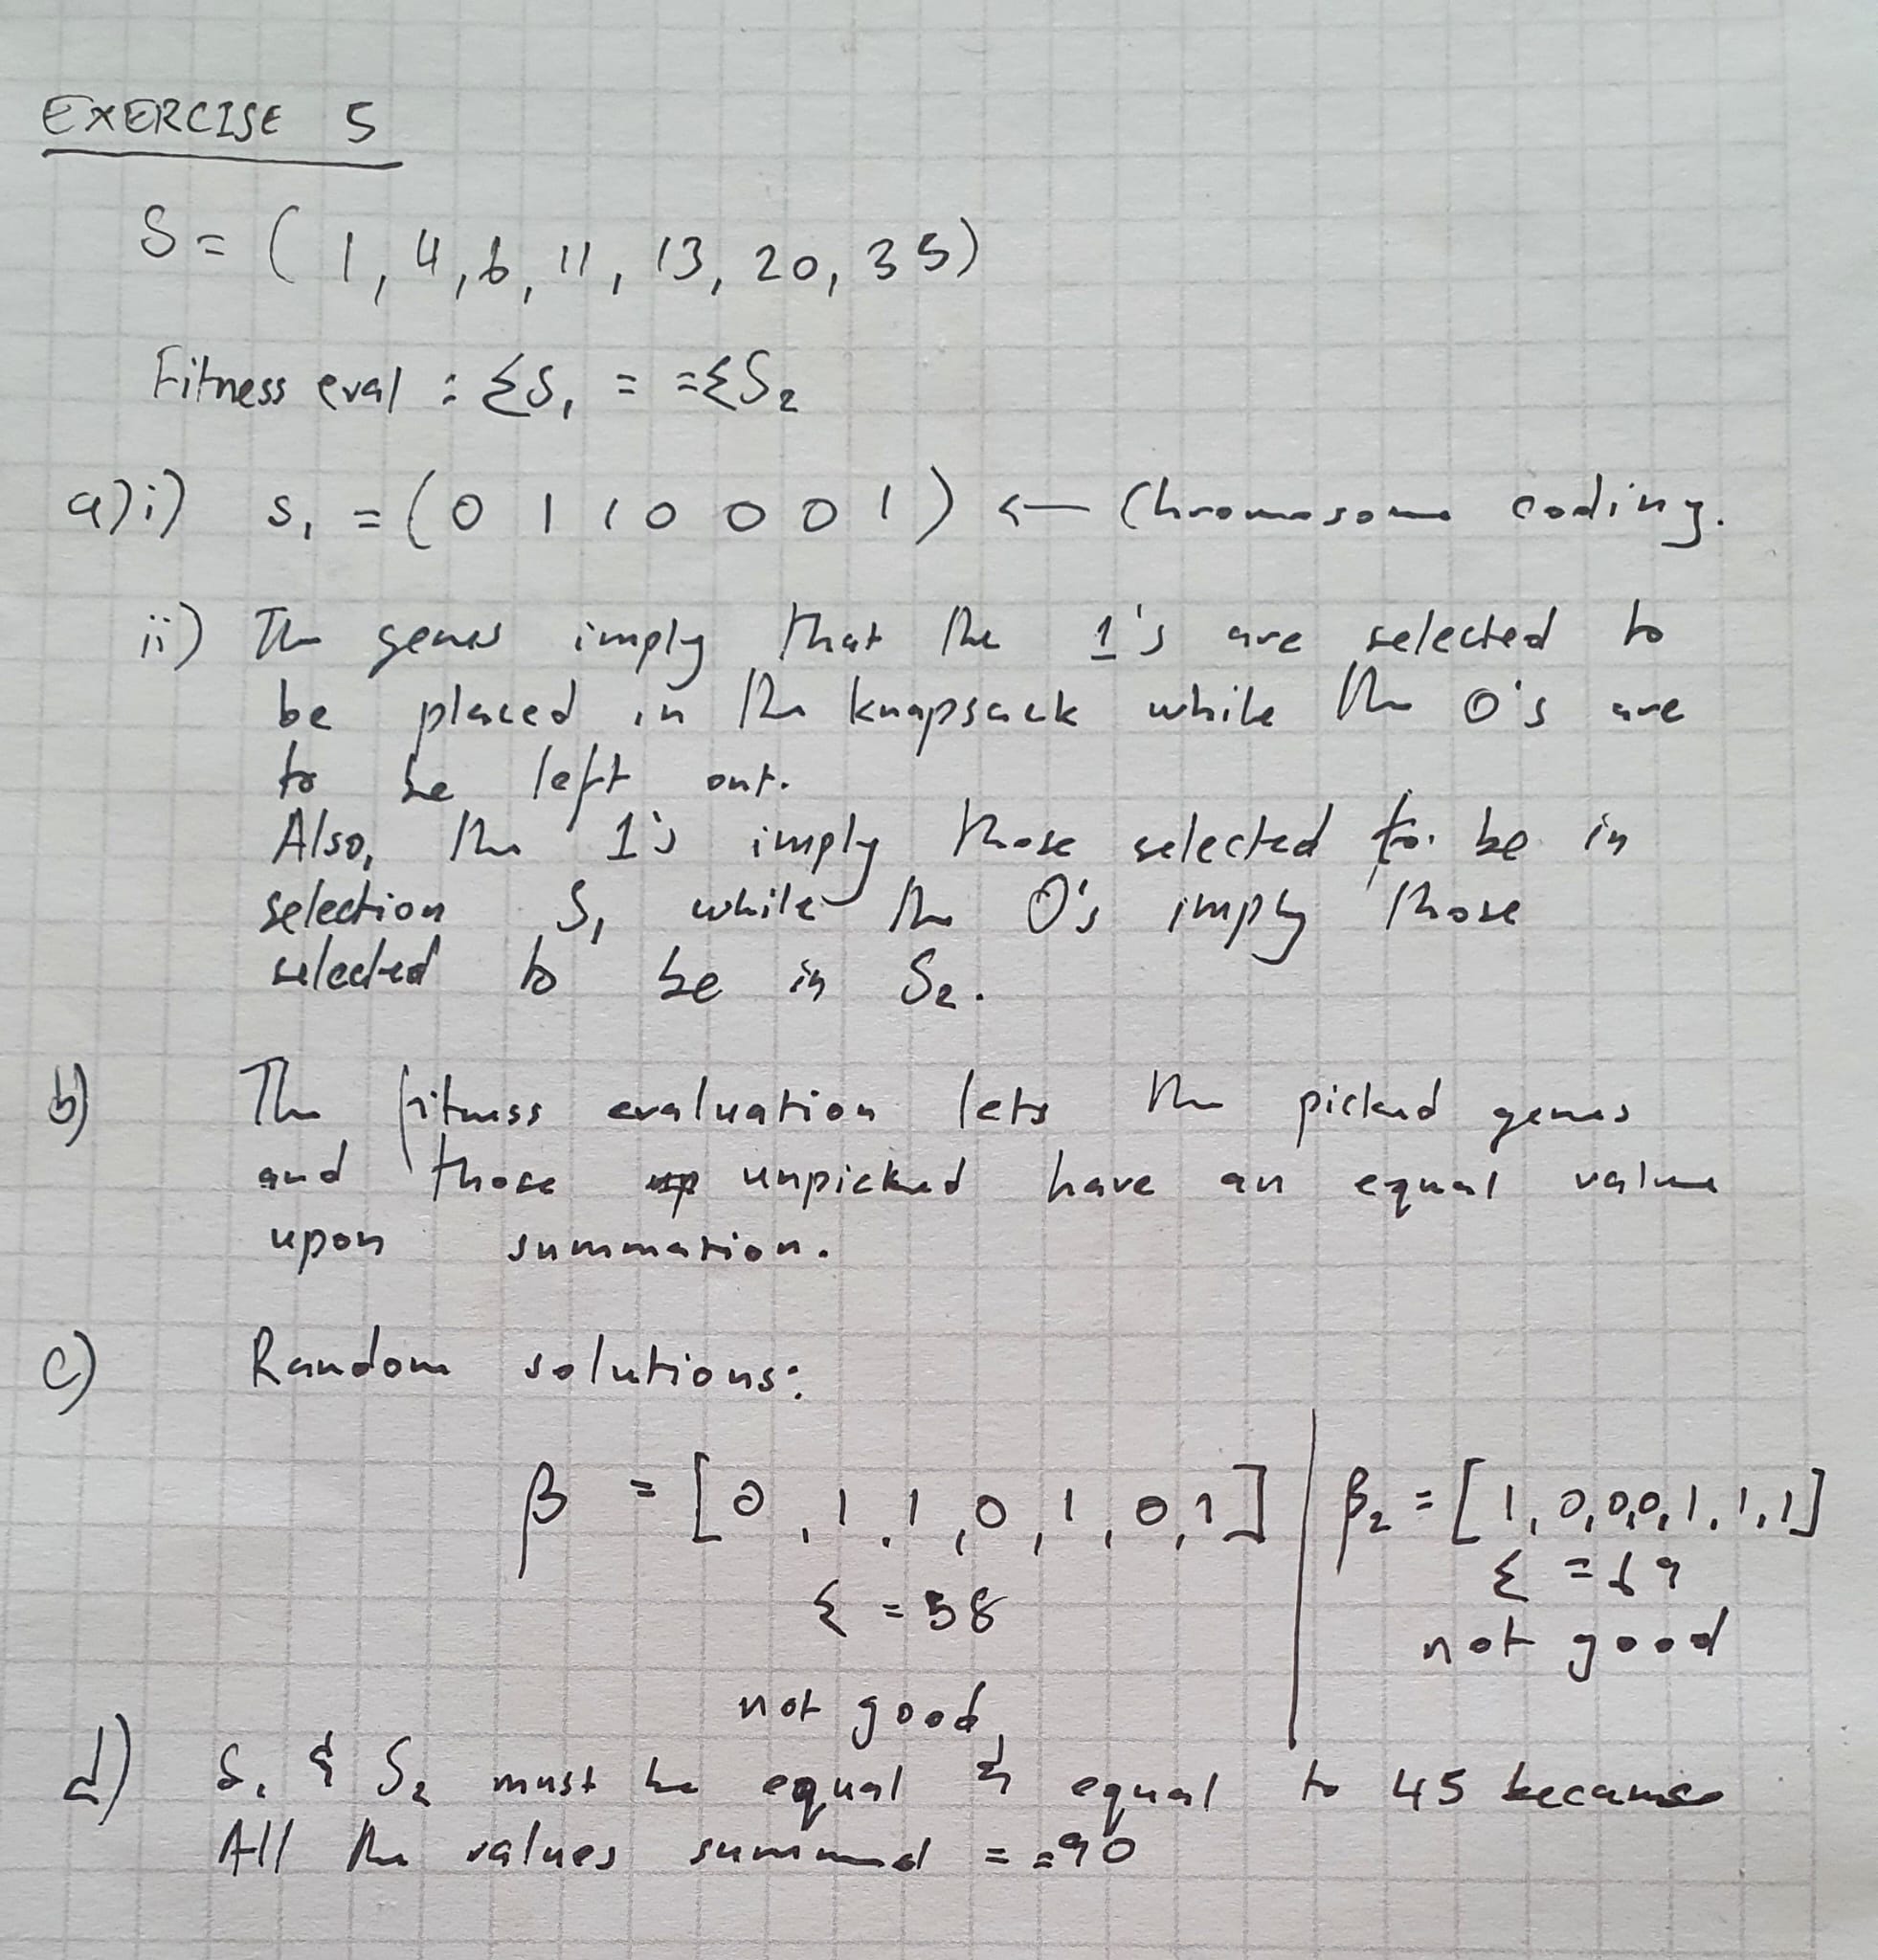 EXERCISE 5
S = ( 1, 4, 6, 11, 13, 20, 35)
Fitness eval : ΣS₁ = =ΣS₂
a)i) s₁ = (0 1 1 0 0 0 1) ← Chromosome coding.
ii) The genes imply that the 1's are selected to
be placed in the knapsack while the 0's are
to be left out.
Also, the 1's imply those selected to be in
selection S₁ while the 0's imply those
selected to be in S₂.
b) The fitness evaluation lets the picked genes
and those unpicked have an equal value
upon summation.
c) Random solutions:
β = [0, 1, 1, 0, 1, 0, 1] | β₂ = [1, 0, 0, 0, 1, 1, 1]
Σ = 58
Σ = 69
not good
not good
d) S₁ & S₂ must be equal & equal to 45 because
All the values summed = =90